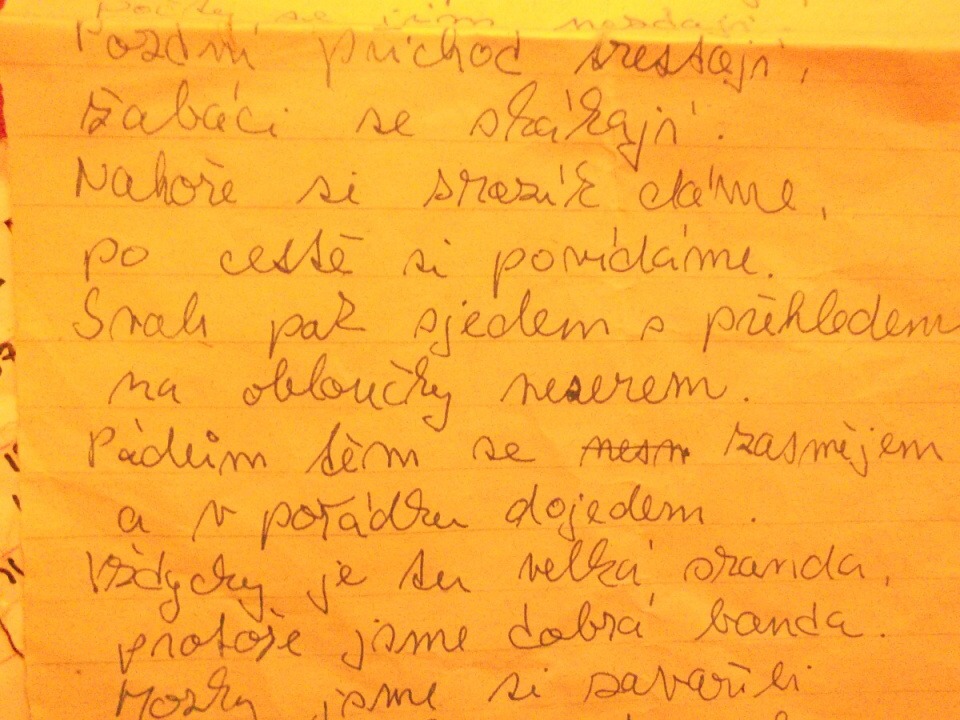 se jim nezdají.
Pozdní příchod trestají,
žabáci se skákají.
Nahoře si srazík dáme,
po cestě si povídáme.
Svah pak sjedem s přehledem
na obloučky neserem.
Pádům těm se zasmějem
a v pořádku dojedem.
Vždycky je tu velká sranda,
protože jsme dobrá banda.
Mozky jsme si zavařili